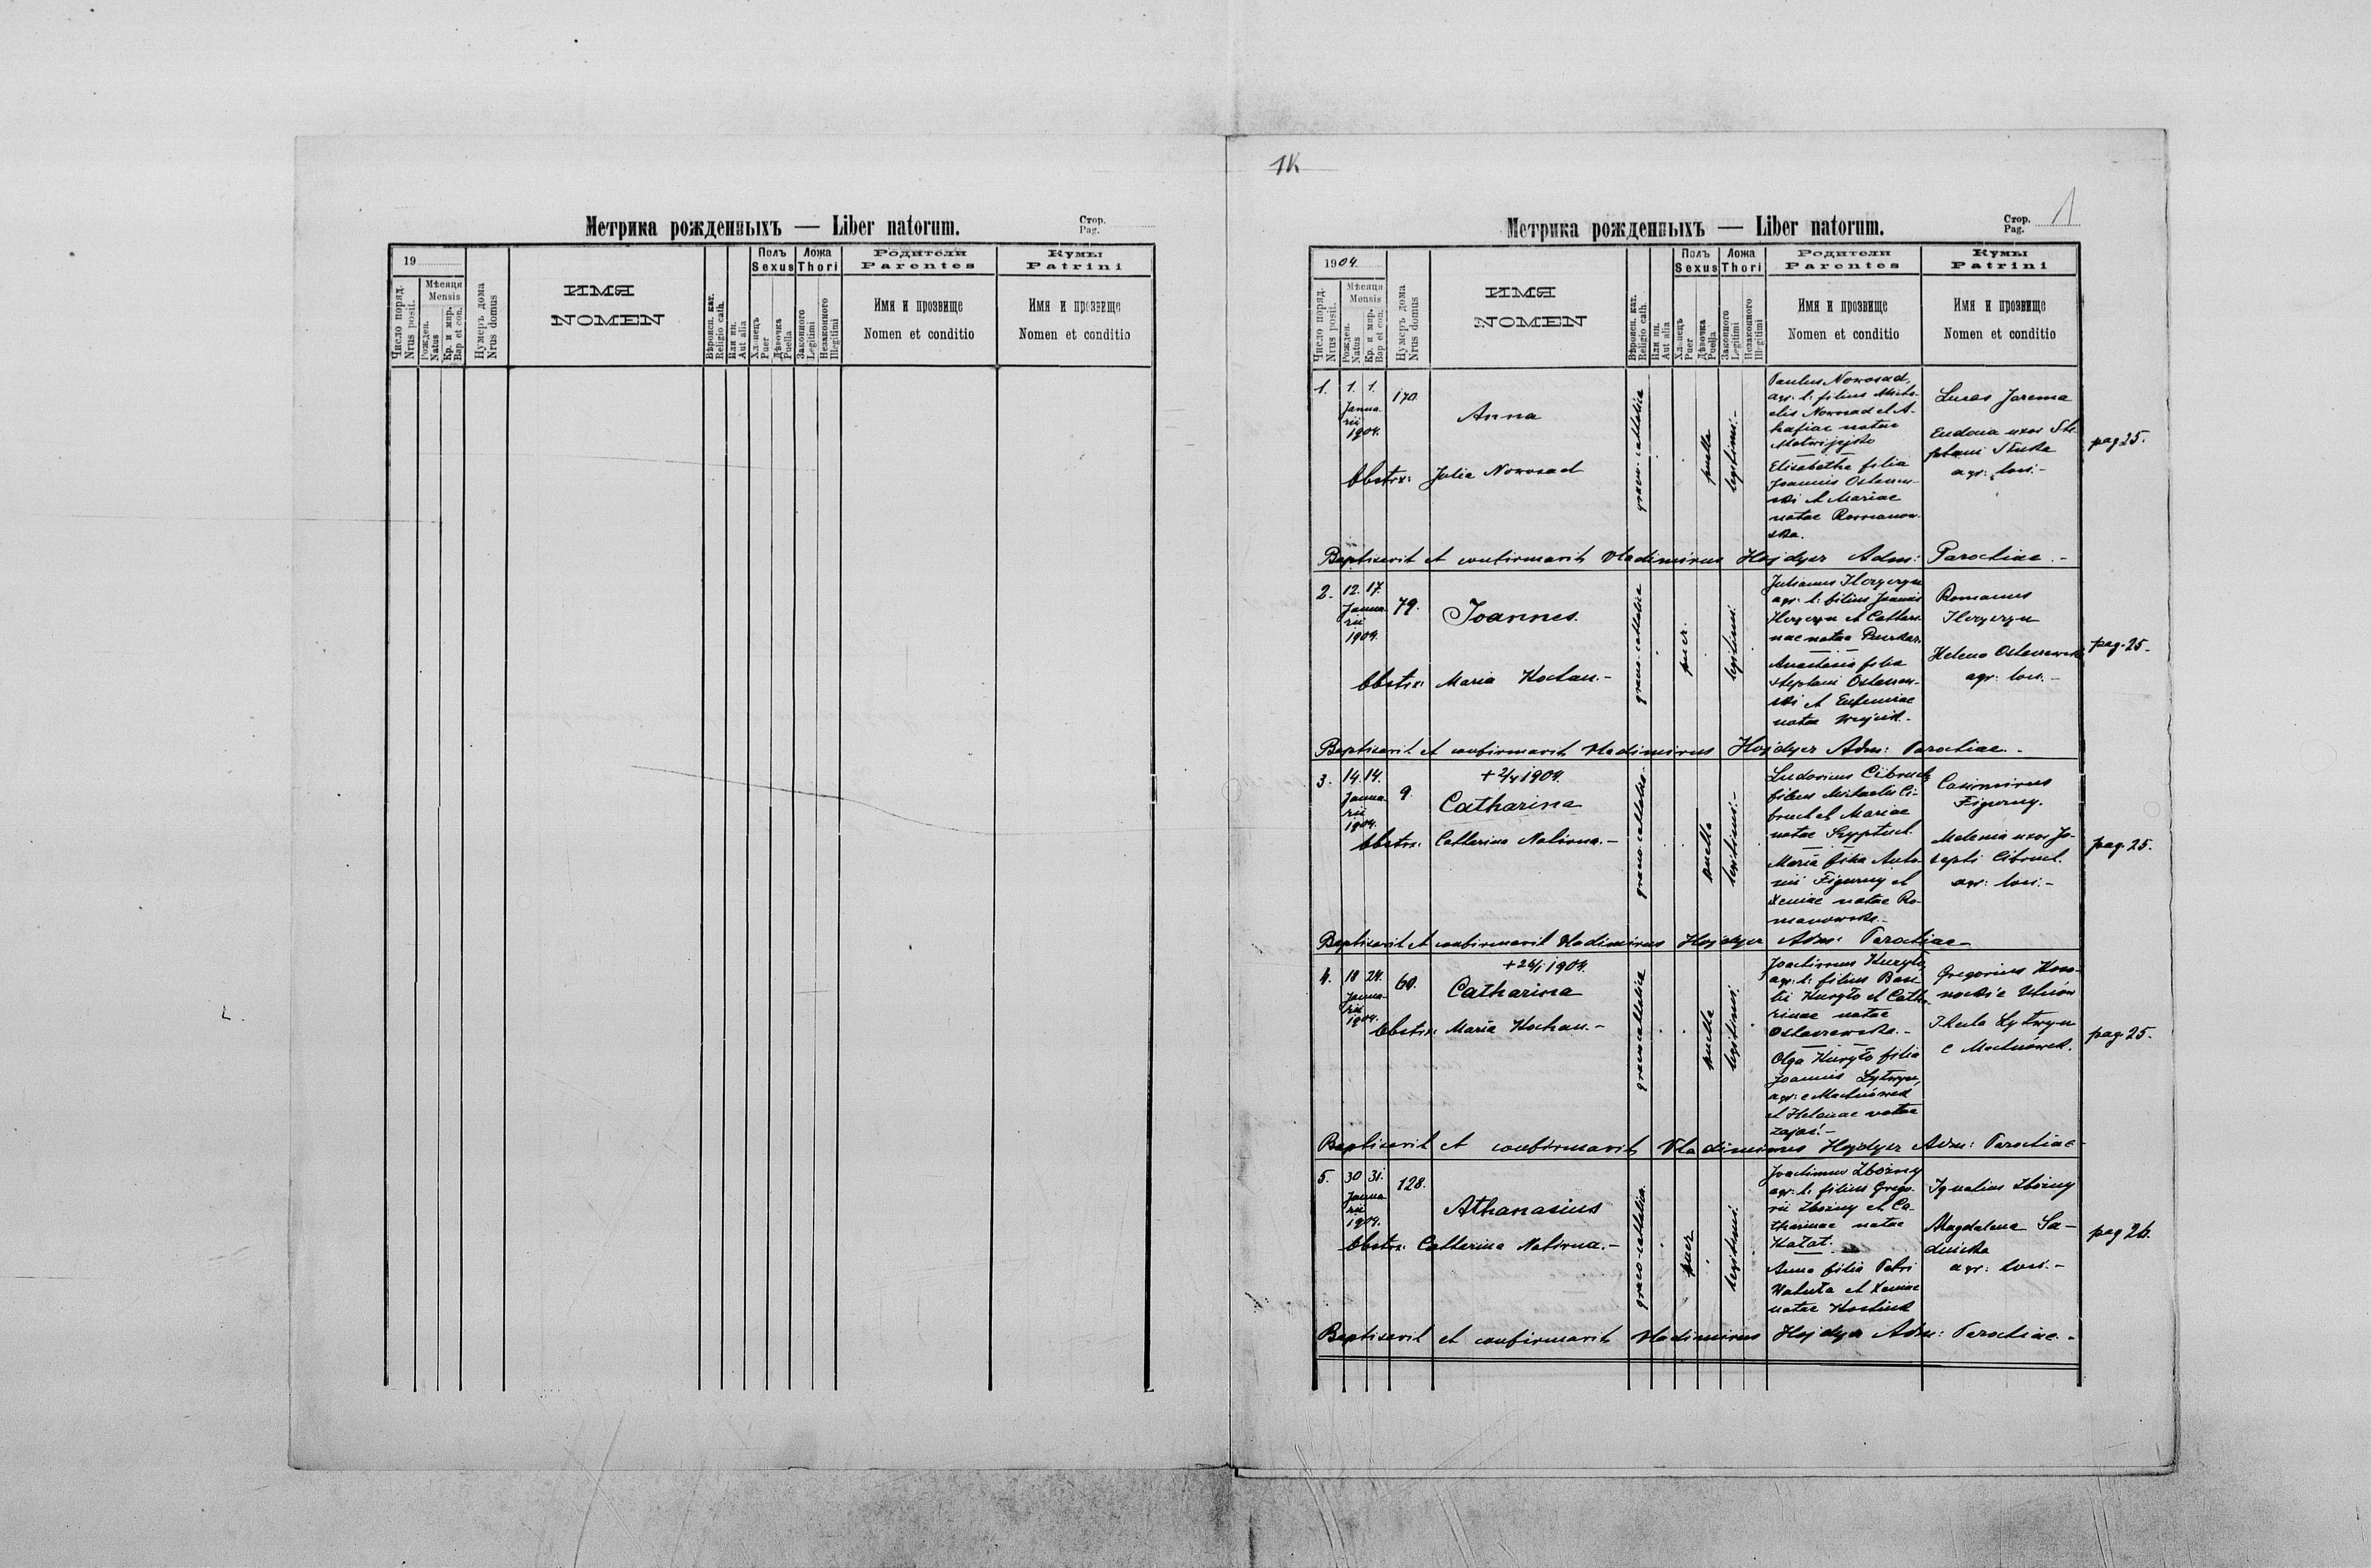 Метрика рожденныхъ — Liber natorum.
Стор.
Pag.
19
Число поряд.
Nrus posit.
Мѣсяця
Mensis
Рожден.
Natus
Кр. и мѵр.
Bap et con.
Нумеръ дома
Nrus domus
ИМЯ
NOMEN
Вѣроисп. кат.
Religio cath.
Или ин.
Aut alia
Полъ
Sexus
Хлопецъ
Puer
Дѣвочка
Puella
Ложа
Thori
Законного
Legitimi
Незаконного
Illegitimi
Родители
Parentes
Имя и прозвище
Nomen et conditio
Кумы
Patrini
Имя и прозвище
Nomen et conditio
1К
Метрика рожденныхъ — Liber natorum.
Стор.
Pag.
1
1904
Число поряд.
Nrus posit.
Мѣсяця
Mensis
Рожден.
Natus
Кр. и мѵр.
Bap et con.
Нумеръ дома
Nrus domus
ИМЯ
NOMEN
Вѣроисп. кат.
Religio cath.
Или ин.
Aut alia
Полъ
Sexus
Хлопецъ
Puer
Дѣвочка
Puella
Ложа
Thori
Законного
Legitimi
Незаконного
Illegitimi
Родители
Parentes
Имя и прозвище
Nomen et conditio
Кумы
Patrini
Имя и прозвище
Nomen et conditio
1. 1. 1. 170.
Janua
rii
1904.
Anna
Obstrx: Julia Nowosad
graeco-catholica
puella
legitimi.-
Paulus Nowosad,
agr. l. filius Micha-
elis Nowosad et A-
hafiae natae
Elisabetha filia
Joannis Ostaszew-
ski et Mariae
natae Romanow-
ska.
Lucas Jarema
Eudocia uxor Ste-
phani
agr: loci.-
pag 25.
Baptisavit et confirmavit Vladimirus Hojdyer Adm: Parochiae.-
2. 12. 17. 79.
Janua
rii
1904.
Joannes.
Obstrx: Maria Kochan.-
graeco-catholica
puer.
legitimi.
Julianus
agr. l: filius Joannis
et Catthari-
nae natae
Anastasia filia
Stephani Ostaszew-
ski et Eufemiae
natae
Romanus
Helena Ostaszewska
agr: loci.-
pag. 25.
Baptisavit et confirmavit Vladimirus Hojdyer Adm: Parochiae.-
3. 14. 14. 9.
Janua
rii
1904.
+ 2/4 1904.
Catharina
Obstrx: Catharina Nalivna.-
graeco-catholica.
puella
legitimi.-
Ludovicus Cibruch
filius Michaelis Ci-
bruch et Mariae
natae
Maria filia Anto-
nii Figurny et
Xeniae natae Ro-
manowska.-
Casimirus
Figurny.
Melania uxor Jo-
sephi Cibruch.
agr: loci.-
pag. 25.
Baptisavit et confirmavit Vladimirus Hojdyer Adm: Parochiae
4. 18 24. 60.
Janua-
rii
1904.
+ 26/1 1904.
Catharina
Obstrx: Maria Kochan.-
graeco catholica
puella
legitimi.
Joachimus Kuryło,
agr. l: filius Basi-
lii Kuryło et Catha-
rinae natae
Ostaszewska.-
Olga Kuryło filia
Joannis Łytwyn,
agr: e Machnówek
et Helenae natae
Zając.-
Gregorius
e Uhnów
Thecla Łytwyn
e Machnówek.
pag. 25.
Baptisavit et confirmavit Vladimirus Hojdyer Adm: Parochiae
5. 30 31. 128.
Janua
rii
1904.
Athanasius
Obstrx: Catharina Nalivna.-
graeco-catholica.
puer
legitimi.
Joachimus Zbożny
agr. l: filius Grego-
rii Zbożny et Ca-
tharinae natae
Hałat.
Anna filia Petri
et Xeniae
natae
Ignatius Zbożny
Magdalena Sa-
dnicka
agr: loci.-
pag 26.
Baptisavit et confirmavit Vladimirus Hojdyer Adm: Parochiae.-